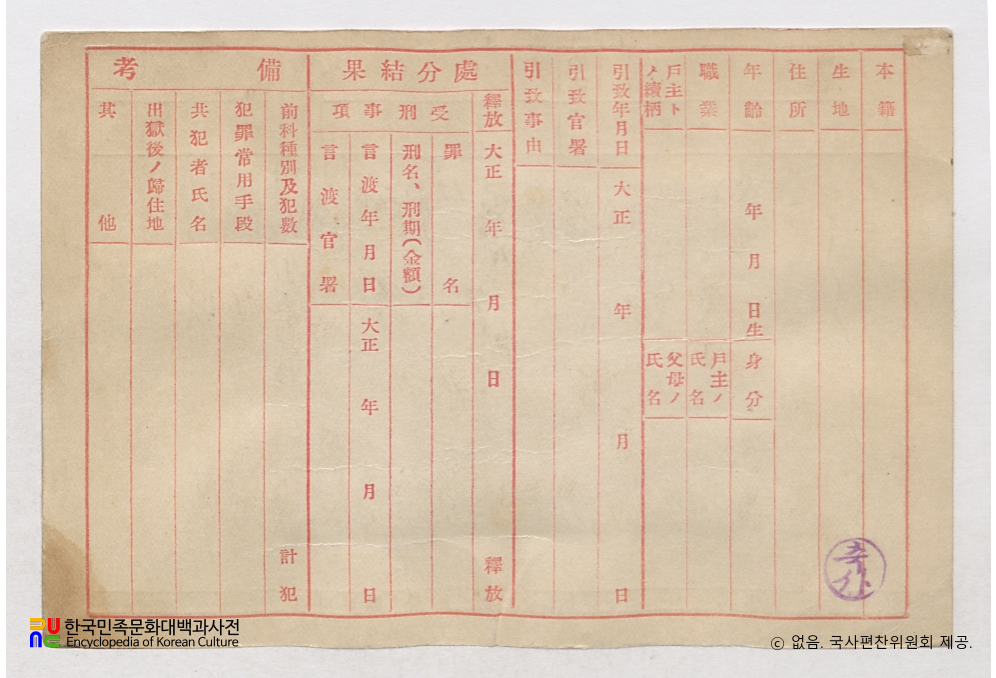 本籍
生地
住所
年齡 年 月 日生
身分
職業
戶主ノ氏名
戶主トノ續柄
父母ノ氏名
引致年月日 大正 年 月 日
引致官署
引致事由
處分結果
釋放 大正 年 月 日 釋放
受刑事項
罪名
刑名、刑期(金額)
言渡年月日 大正 年 月 日
言渡官署
備考
前科種別及犯數 計 犯
犯罪常用手段
共犯者氏名
出獄後ノ歸住地
其他
한국민족문화대백과사전
Encyclopedia of Korean Culture
© 없음. 국사편찬위원회 제공.